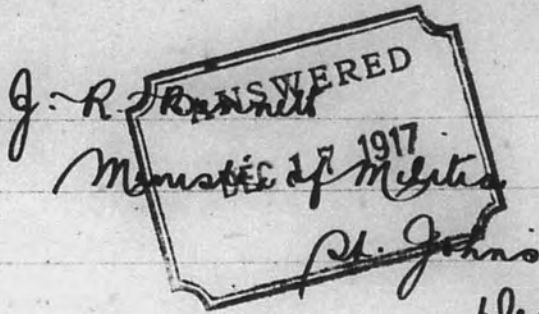 J. R. Bennett
ANSWERED
DEC 17 1917
Minister of Militia
St. Johns